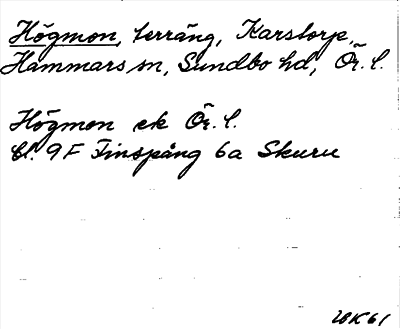 Högmon, terräng, Karstorp,
Hammars sn, Sundbo hd, Ör. l.
Högmon ek Ör. l.
bl. 9F Finspång 6a Skuru